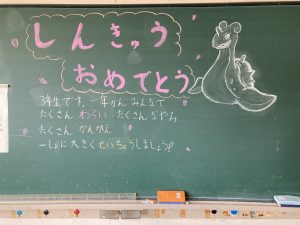 しんきゅう
おめでとう
3年生です。一年かん みんなで
たくさん わらい たくさん なやみ
たくさん かんがえ
一しょに 大きく せいちょうしましょう!